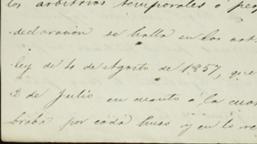 los arbitrios temporales o pe
declaracion se halla en los
ley de 10 de Agosto de 1857, que
2 de Julio en cuanto á la
por cada una y en lo